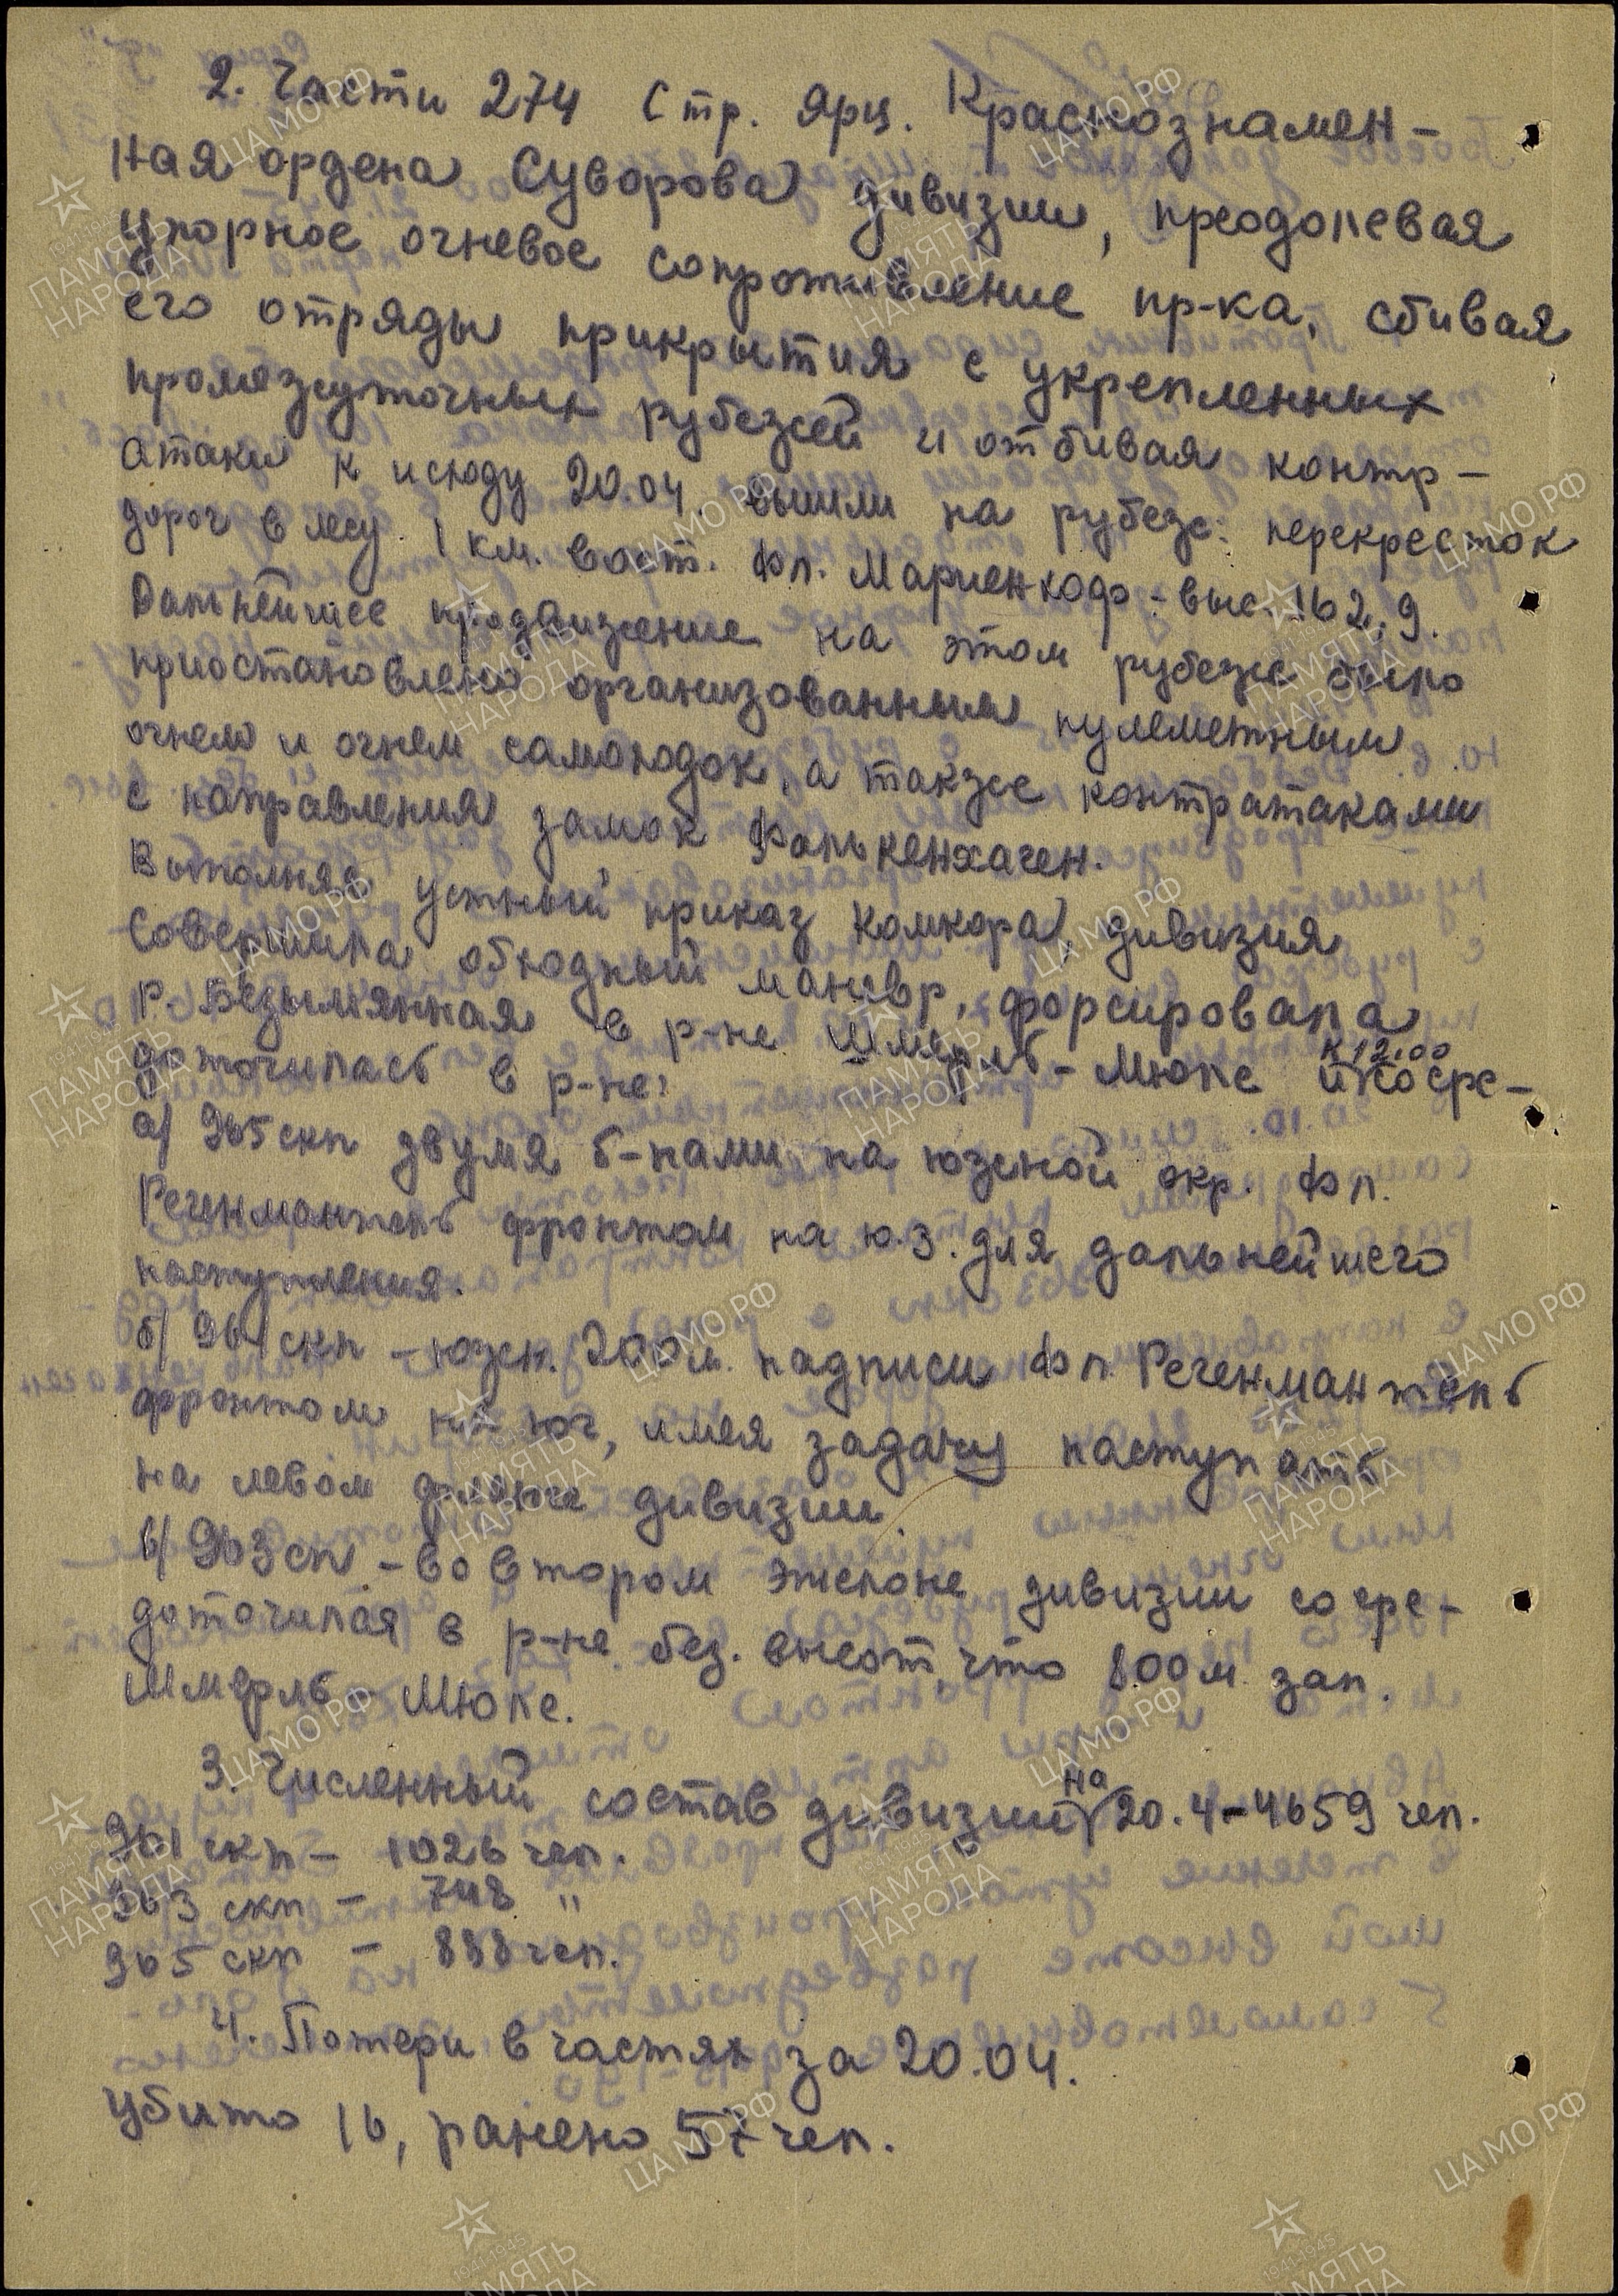 2. Части 274 Стр. Ярц. Краснознамен-
ная ордена Суворова дивизии, преодолевая
упорное огневое сопротивление пр-ка, сбивая
его отряды прикрытия с укрепленных
промежуточных рубежей и отбивая контр-
атаки к исходу 20.04. вышли на рубеж: перекресток
дорог в лесу 1 км. вост. Фл. Мариенхоф - выс. 162,9.
Дальнейшее продвижение на этом рубеже было
приостановлено организованным пулеметным
огнем и огнем самоходок, а также контратаками
с направления замок Фалькенхаген.
Выполняя устный приказ комкора, дивизия
совершила обходный маневр, форсировала
р. Безымянная в р-не Шмерль-Мюле и к 12.00 сосре-
доточилась в р-не:
а/ 965 скп двумя б-нами на южной окр. Фл.
Регенмантель фронтом на ю.з. для дальнейшего
наступления.
б/ 961 скп - южн. 200 м. надписи Фл. Регенмантель
фронтом на юг, имея задачу наступать
на левом фланге дивизии.
в/ 963 сп - во втором эшелоне дивизии сосре-
доточился в р-не без. высот, что 800 м. зап.
Шмерль-Мюле.
3. Численный состав дивизии на 20.4 - 4659 чел.
961 скп - 1026 чел.
963 скп - 748 "
965 скп - 898 чел.
4. Потери в частях за 20.04.
убито 16, ранено 57 чел.
ЦА МО РФ
1941-1945
ПАМЯТЬ
НАРОДА